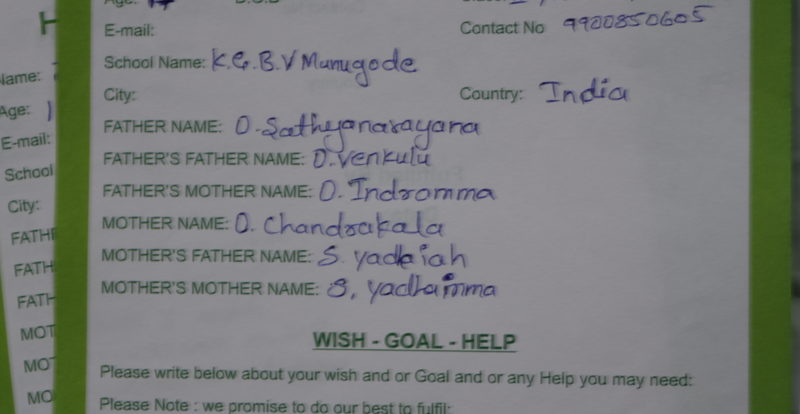 Age: 17
H
E-mail:
Contact No 9900850605
School Name: K.G.B.V Munugode
Name:
City:
Country: India
Age: 1
FATHER NAME: D. Sathyanarayana
E-mail:
FATHER'S FATHER NAME: D. Venkulu
School
FATHER'S MOTHER NAME: D. Indramma
City:
MOTHER NAME: D. Chandrakala
FATH
MOTHER'S FATHER NAME: S. yadaiah
FATH
MOTHER'S MOTHER NAME: S. yadhamma
FATH
MOT
WISH - GOAL - HELP
MOT
Please write below about your wish and or Goal and or any Help you may need:
MO
Please Note : we promise to do our best to fulfil: